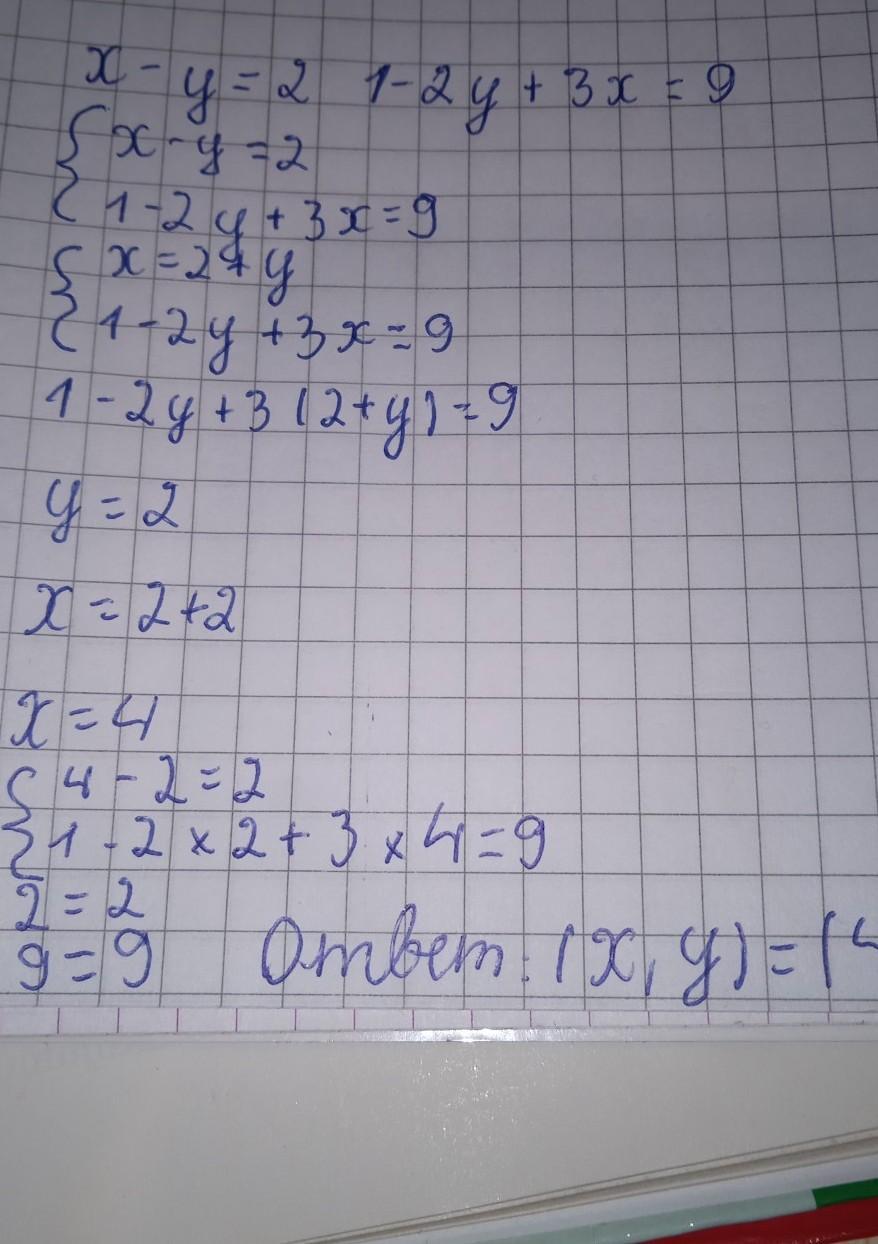 x - y = 2 1 - 2y + 3x = 9
{ x - y = 2
{ 1 - 2y + 3x = 9
{ x = 2 + y
{ 1 - 2y + 3x = 9
1 - 2y + 3(2+y) = 9
y = 2
x = 2+2
x = 4
{ 4 - 2 = 2
{ 1 - 2 × 2 + 3 × 4 = 9
2 = 2
9 = 9 Ответ: (x, y) = (4